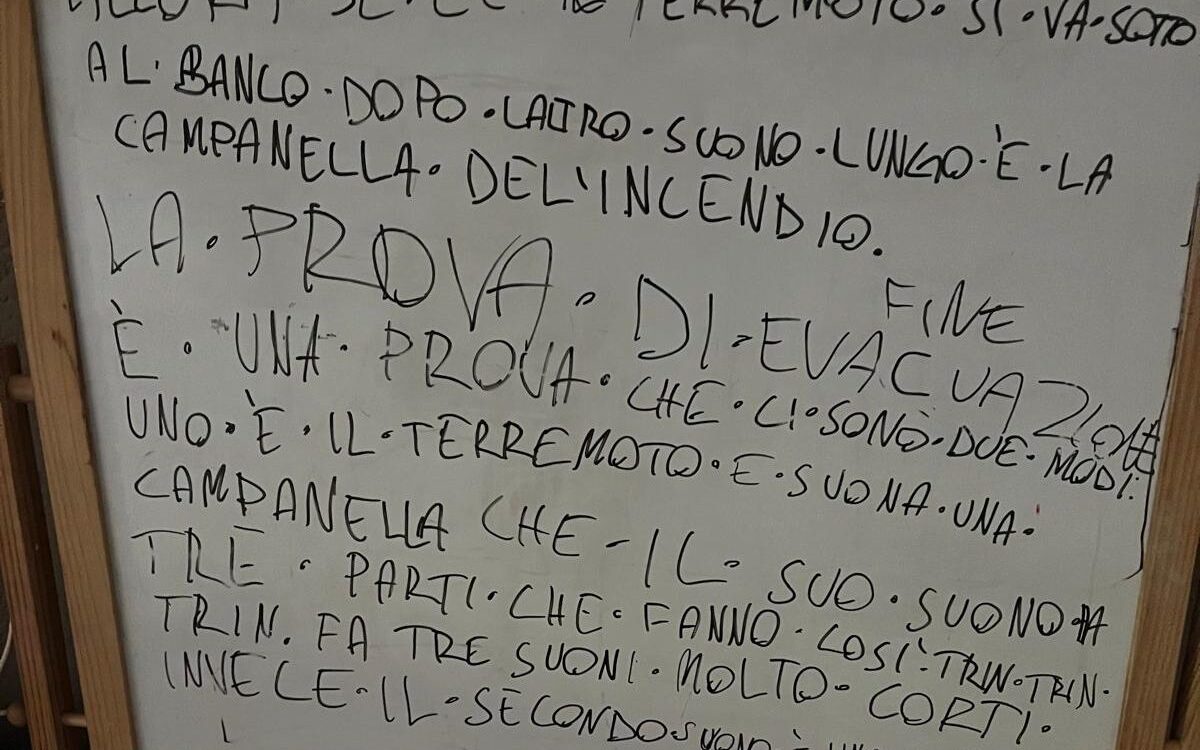 SE. C'È TERREMOTO. SI. VA. SOTTO
AL. BANCO. DOPO. LALTRO. SUONO. LUNGO. È. LA
CAMPANELLA. DEL'INCENDIO.
FINE
LA. PROVA. DI. EVACUAZIONE
È. UNA. PROVA. CHE. CI. SONO. DUE. MODI.
UNO. È. IL. TERREMOTO. E. SUONA. UNA.
CAMPANELLA CHE - IL. SUO. SUONO HA
TRE. PARTI. CHE. FANNO. COSÌ: TRIN. TRIN.
TRIN. FA TRE SUONI. MOLTO. CORTI.
INVECE. IL. SECONDO. SUONO È